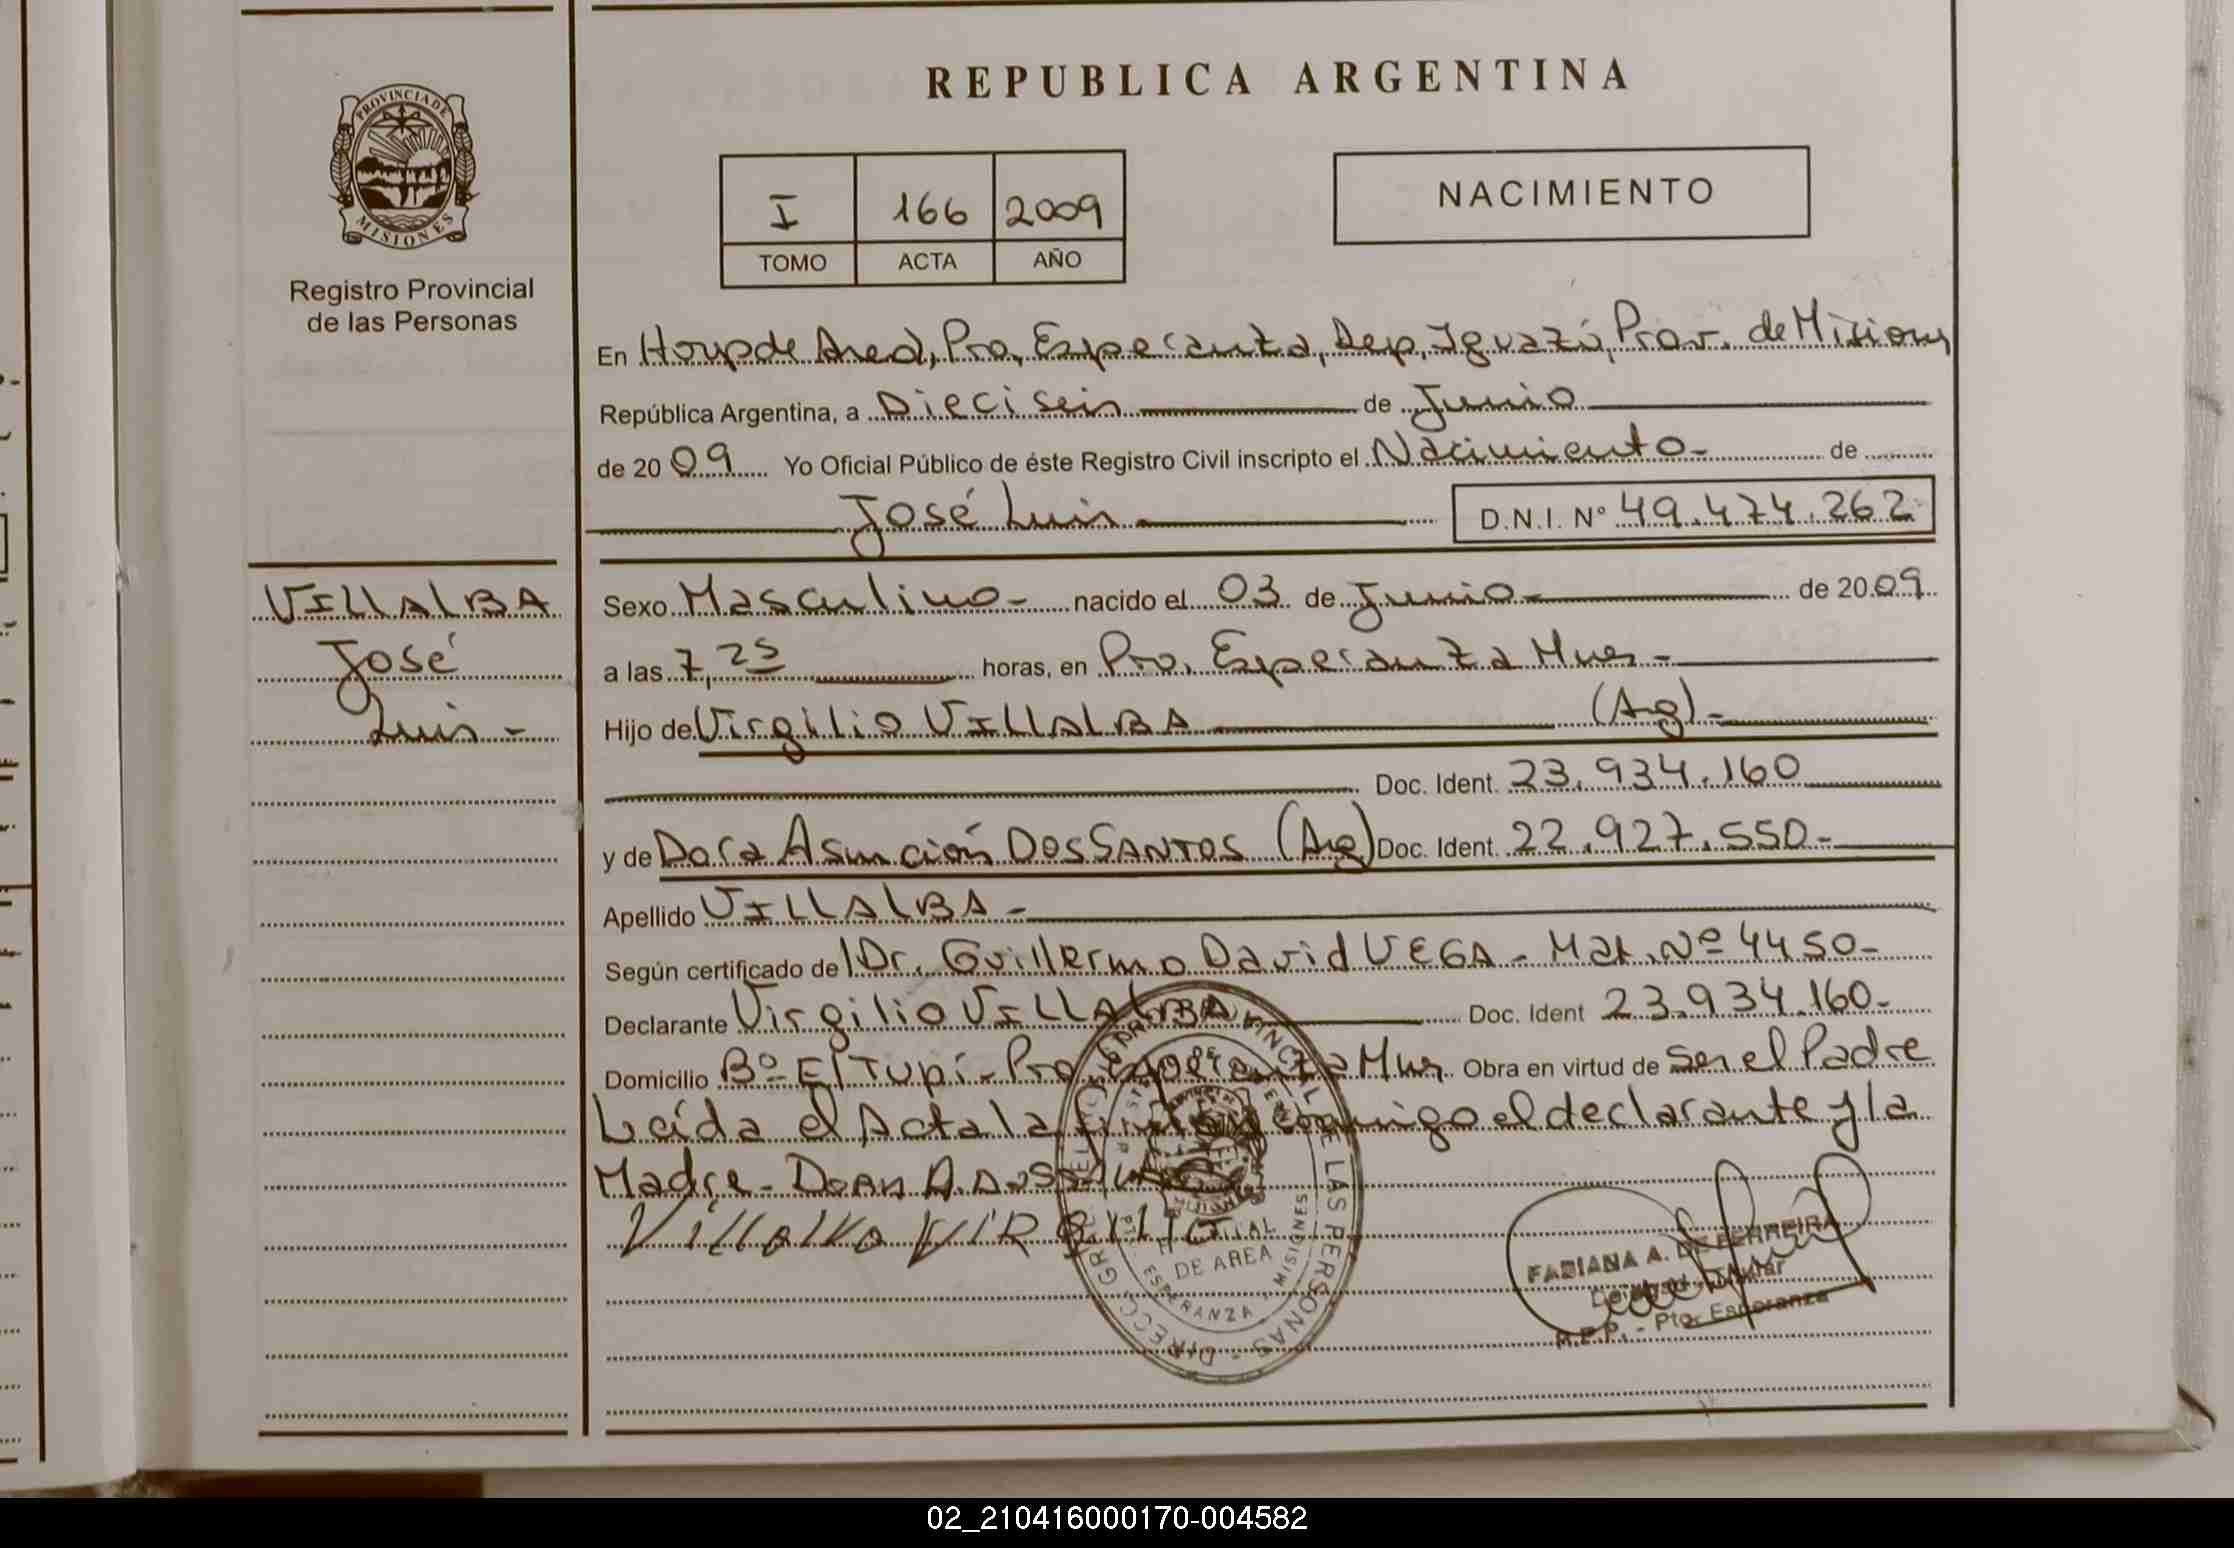 REPUBLICA ARGENTINA
PROVINCIA DE MISIONES
Registro Provincial
de las Personas
I 166 2009
TOMO ACTA AÑO
NACIMIENTO
En Hosp de Area, Pto, Esperanza, Dep, Iguazú, Prov. de Misiones
República Argentina, a Dieciseis de Junio
de 20 09 Yo Oficial Público de éste Registro Civil inscripto el Nacimiento- de
José Luis D.N.I. Nº 49.474.262
VILLALBA
José
Luis-
Sexo Masculino- nacido el 03 de Junio- de 20 09
a las 7,25 horas, en Pto. Esperanza Mnes-
Hijo de Virgilio VILLALBA (Arg)-
Doc. Ident. 23.934.160
y de Dora Asunción DOS SANTOS (Arg) Doc. Ident. 22.927.550-
Apellido VILLALBA-
Según certificado de Dr. Guillermo David VEGA - Mat. Nº 4450-
Declarante Virgilio VILLALBA Doc. Ident 23.934.160-
Domicilio Bº El Tupi- Pto Esperanza Mnes Obra en virtud de Ser el Padre
Leída el Acta la firman conmigo el declarante y la
Madre-
DE AREA
ESPERANZA - MISIONES
DE LAS PERSONAS
FABIANA A. DE FERREIRA
R.P.P. - Pto. Esperanza
02_210416000170-004582